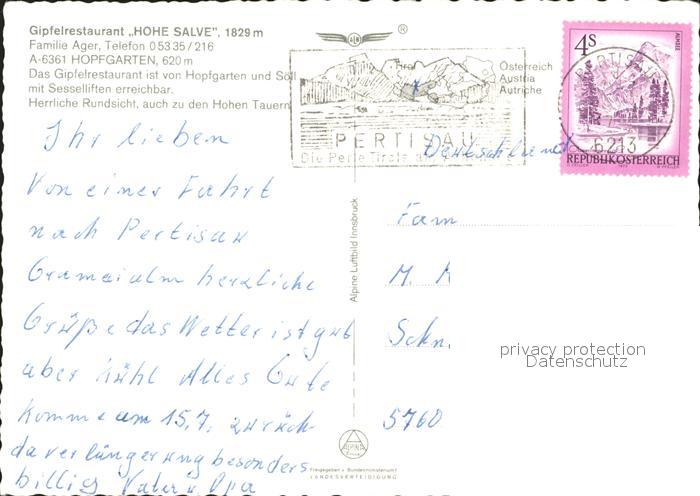 Gipfelrestaurant „HOHE SALVE", 1829 m
Familie Ager, Telefon 0 53 35 / 216
A-6361 HOPFGARTEN, 620 m
Das Gipfelrestaurant ist von Hopfgarten und Söll
mit Sesselliften erreichbar.
Herrliche Rundsicht, auch zu den Hohen Tauern
Ihr lieben
Von einer Fahrt
nach Pertisau
Gramaialm herzliche
Grüße das Wetter ist gut
aber kühl Alles Gute
komme am 15.7. zurück
da verlängerung besonders
billig Vater u. Opa
Alpine Luftbild Innsbruck
®
Tirol
Österreich
Austria
Autriche
PERTISAU
Die Perle Tirols
4S
ALMSEE
PERTISAU
6213
REPUBLIK ÖSTERREICH
Deutschland
Fam
M. M
Schn.
5760
privacy protection
Datenschutz
ALPINE
Freigegeben v. Bundesministerium f.
LANDESVERTEIDIGUNG